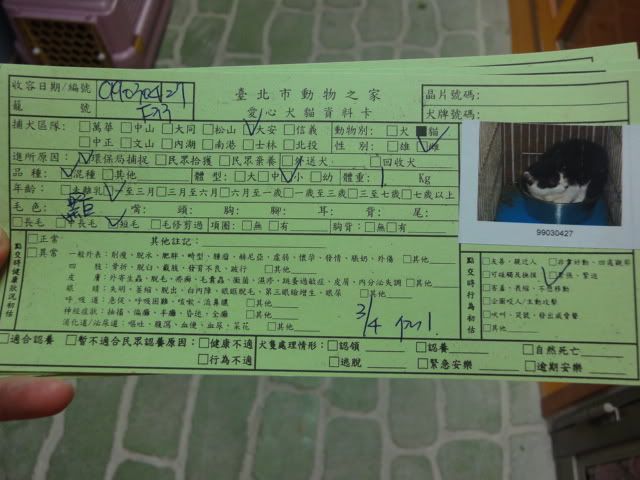 臺北市動物之家
愛心犬貓資料卡
收容日期/編號 09030427
籠 號
晶片號碼:
犬牌號碼:
捕犬區隊: □萬華 □中山 □大同 □松山 ☑大安 □信義 動物別: □犬 ■貓
□中正 □文山 □內湖 □南港 □士林 □北投 性 別: □雄 ☑雌
進所原因: ☑環保局捕捉 □民眾拾獲 □民眾棄養 □送犬 □回收犬
品種: ☑混種 □其他 體型: □大 □中 ☑小 □幼 體重: 1 Kg
年齡: □未離乳 ☑至三月 □三月至六月 □六月至一歲 □一歲至三歲 □三至七歲 □七歲以上
毛色: 嘴: 頭: 胸: 腳: 耳: 背: 尾:
□長毛 □中長毛 ☑短毛 □毛修剪過 項圈: □無 □有 胸背: □無 □有
99030427
點交時健康狀況初估
□正常
□異常
其他註記:
一般外表: 削瘦、脫水、肥胖、畸型、腫瘤、赫尼亞、虛弱、懷孕、發情、脹奶、外傷 □其他
四 肢: 骨折、脫臼、截肢、發育不良、跛行 □其他
皮 膚: 外寄生蟲、脫毛、疥癬、毛囊蟲、黴菌、濕疹、跳蚤過敏症、皮屑、內分泌失調 □其他
眼 睛: 失明、萎縮、脫出、白內障、眼瞼脫毛、第三眼瞼增生、眼屎 □其他
呼吸道: 急促、呼吸困難、咳嗽、流鼻膿 □其他
神經症狀: 抽搐、偏癱、半癱、昏迷、全癱 □其他
消化道/泌尿道: 嘔吐、腹瀉、血便、血尿、菜花 □其他
3/4
點交時行為初估
□友善、親近人
□可碰觸及撫摸
□害羞、畏縮、不想移動
□企圖咬人/主動攻擊
□吠叫、哭號、發出威脅聲
□其他
□適合認養 □暫不適合民眾認養原因: □健康不適
□行為不適
犬隻處理情形: □認領 □認養 □自然死亡
□逃脫 □緊急安樂 □逾期安樂